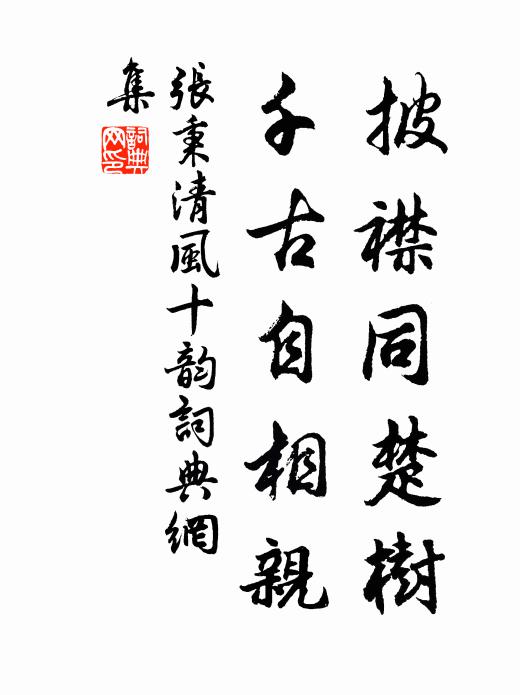 披襟同楚樹
千古自相親
張秉清風十韵詞典網
集
詞典
网印